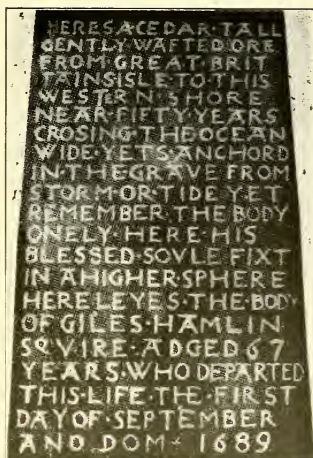 HERES·A·CEDAR·TALL
GENTLY·WAFTED·ORE
FROM·GREAT·BRIT
TAINS·ISLE·TO·THIS
WESTERN·SHORE
NEAR·FIFTY·YEARS
CROSING·THE·OCEAN
WIDE·YETS·ANCHORD
IN·THE·GRAVE·FROM
STORM·OR·TIDE·YET
REMEMBER·THE·BODY
ONELY·HERE·HIS
BLESSED·SOVLE·FIXT
IN·A·HIGHER·SPHERE
HERE·LEYES·THE·BODY
OF·GILES·HAMLIN
SQVIRE·ADGED·67
YEARS·WHO·DEPARTED
THIS·LIFE·THE·FIRST
DAY·OF·SEPTEMBER
ANNO·DOM·1689